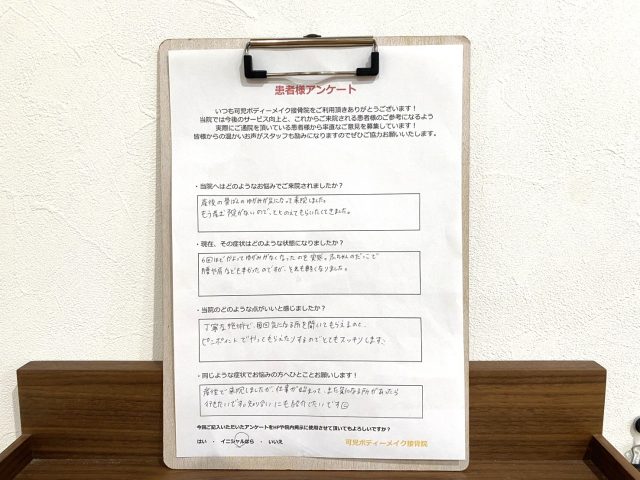 患者様アンケート
いつも可児ボディーメイク接骨院をご利用頂きありがとうございます！
当院では今後のサービス向上と、これからご来院される患者様のご参考になるよう
実際にご通院を頂いている患者様から率直なご意見を募集しています！
皆様からの温かいお声がスタッフも励みになりますのでぜひご協力お願いいたします。
・当院へはどのようなお悩みでご来院されましたか？
産後の骨ばんのゆがみが気になって来院しました。
もう産む予定がないので、ととのえてもらいたくてきました。
・現在、その症状はどのような状態になりましたか？
6回ほどかよってゆがみがなくなったのを実感。赤ちゃんのだっこで
腰や肩なども辛かったのですが、それも軽くなりました。
・当院のどのような点がいいと感じましたか？
丁寧な施術で、毎回気になる所を聞いてもらえるので、
ピンポイントでやってもらえたりするのでとてもスッキリします。
・同じような症状でお悩みの方へひとことお願いします！
産後で来院しましたが、仕事が始まって、また気になる所があったら
行きたいです。知り合いにも紹介したいです
今回ご記入いただいたアンケートをHPや院内掲示に使用させて頂いてもよろしいですか？
はい ・ イニシャルなら ・ いいえ
可児ボディーメイク接骨院